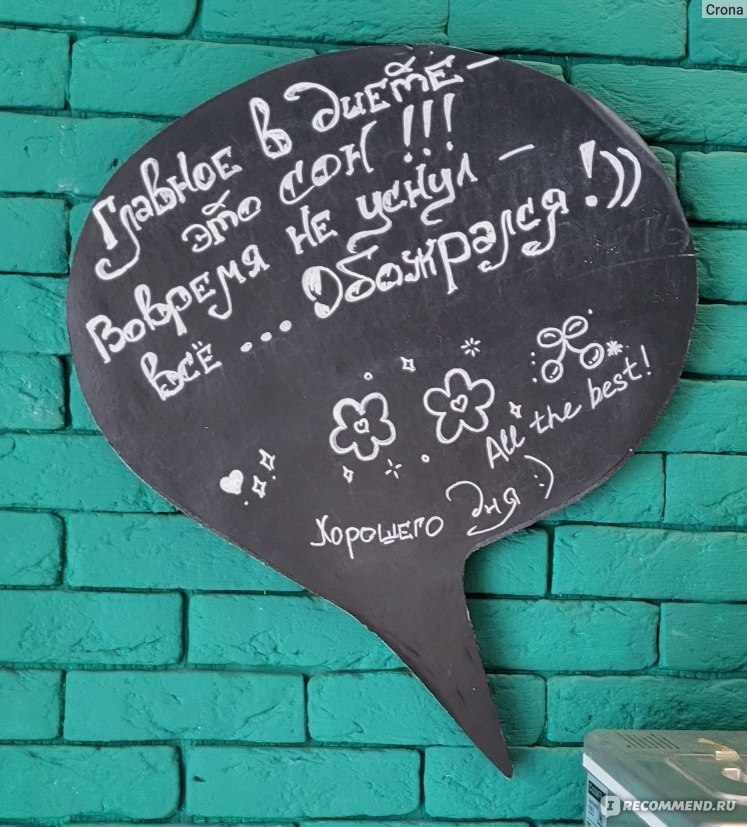 Crona
Главное в диете –
это сон !!!
Вовремя не уснул –
всё ... Обожрался !))
All the best!
Хорошего дня :)
I RECOMMEND.RU